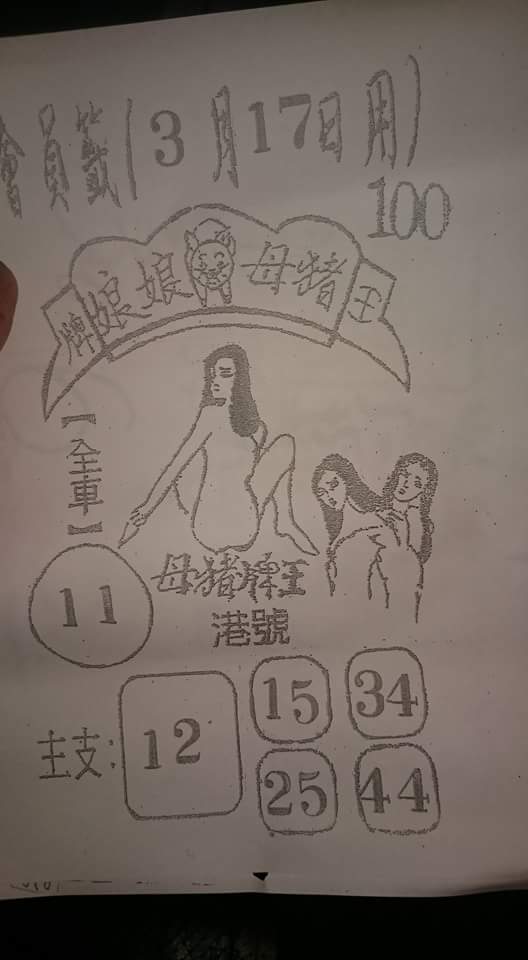 會員籤(3月17日用)
100
牌娘娘母猪王
【全車】
11
母猪牌王
港號
主支:12
15 34
25 44